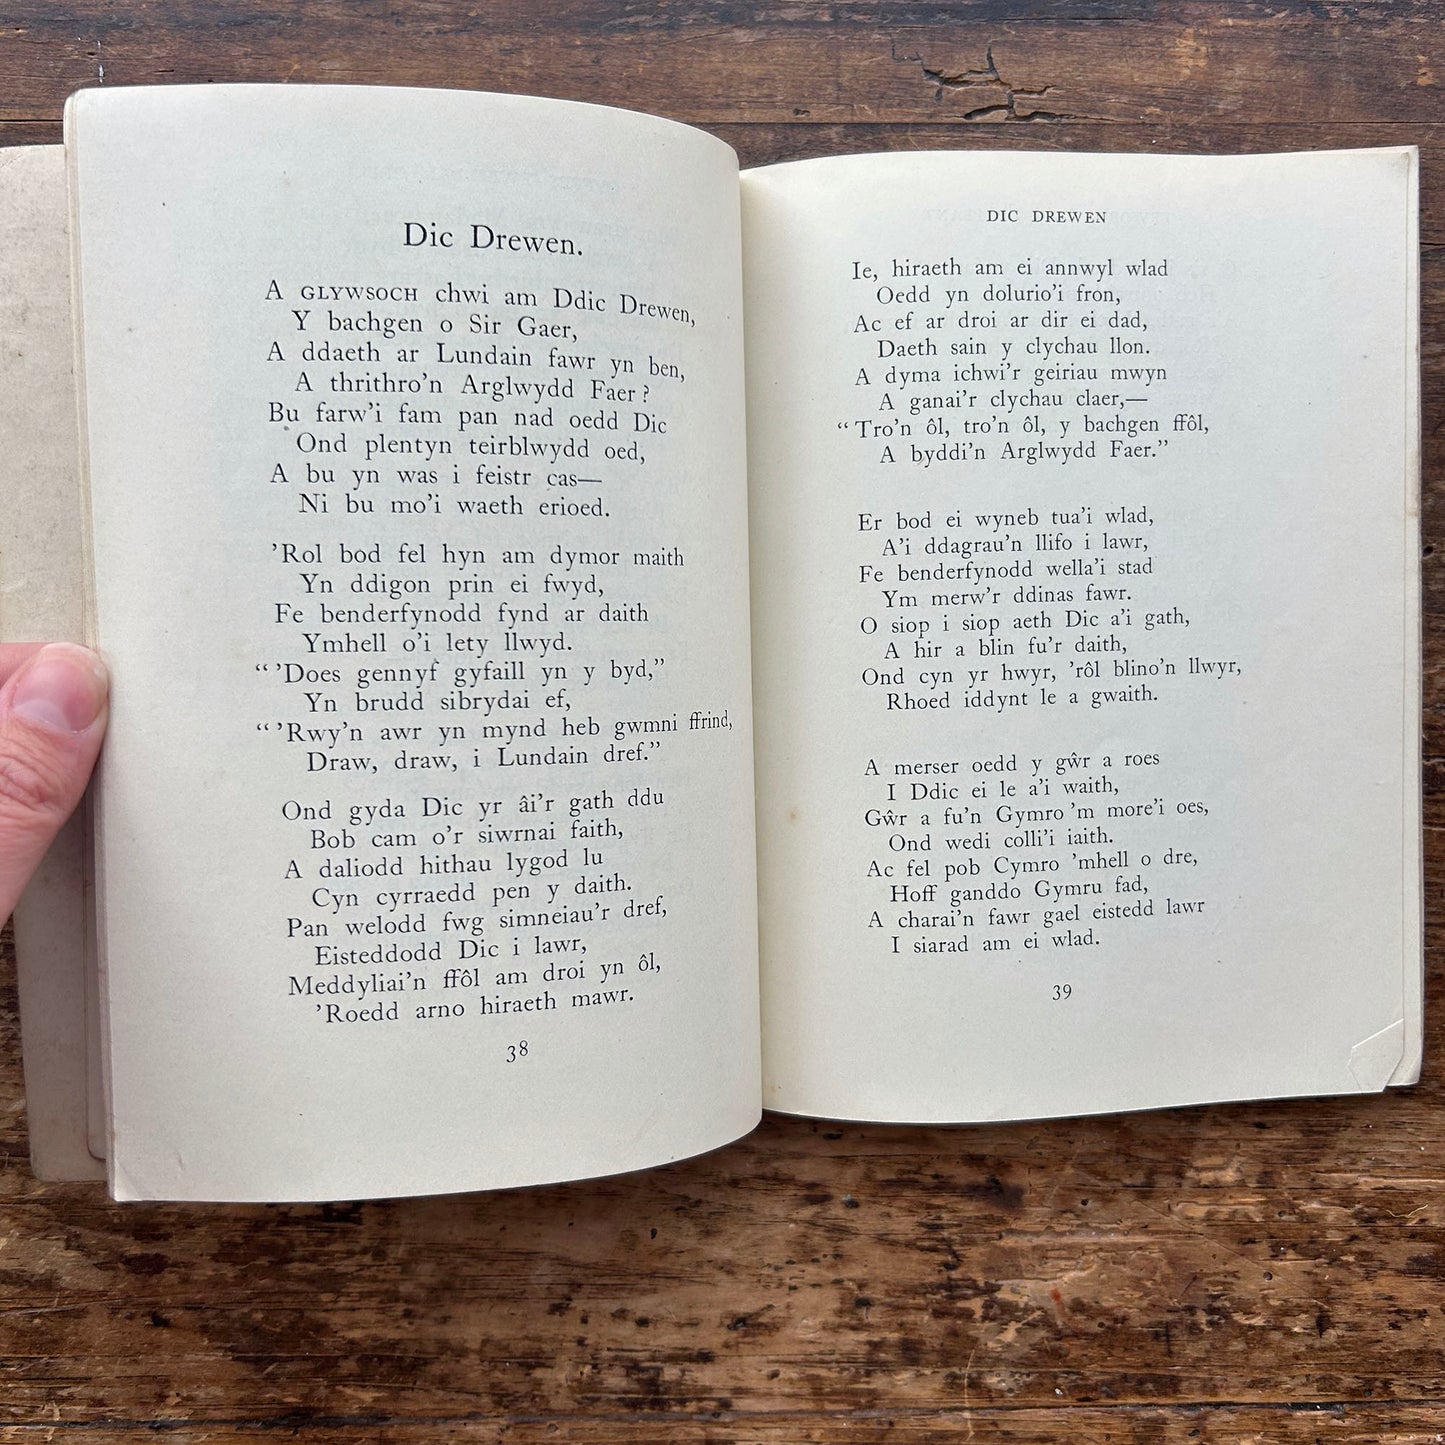 Dic Drewen.
A GLYWSOCH chwi am Ddic Drewen,
Y bachgen o Sir Gaer,
A ddaeth ar Lundain fawr yn ben,
A thrithro'n Arglwydd Faer?
Bu farw'i fam pan nad oedd Dic
Ond plentyn teirblwydd oed,
A bu yn was i feistr cas—
Ni bu mo'i waeth erioed.
'Rol bod fel hyn am dymor maith
Yn ddigon prin ei fwyd,
Fe benderfynodd fynd ar daith
Ymhell o'i lety llwyd.
“'Does gennyf gyfaill yn y byd,”
Yn brudd sibrydai ef,
“'Rwy'n awr yn mynd heb gwmni ffrind,
Draw, draw, i Lundain dref.”
Ond gyda Dic yr âi'r gath ddu
Bob cam o'r siwrnai faith,
A daliodd hithau lygod lu
Cyn cyrraedd pen y daith.
Pan welodd fwg simneiau'r dref,
Eisteddodd Dic i lawr,
Meddyliai'n ffôl am droi yn ôl,
'Roedd arno hiraeth mawr.
38
DIC DREWEN
Ie, hiraeth am ei annwyl wlad
Oedd yn dolurio'i fron,
Ac ef ar droi ar dir ei dad,
Daeth sain y clychau llon.
A dyma ichwi'r geiriau mwyn
A ganai'r clychau claer,—
“Tro'n ôl, tro'n ôl, y bachgen ffôl,
A byddi'n Arglwydd Faer.”
Er bod ei wyneb tua'i wlad,
A'i ddagrau'n llifo i lawr,
Fe benderfynodd wella'i stad
Ym merw'r ddinas fawr.
O siop i siop aeth Dic a'i gath,
A hir a blin fu'r daith,
Ond cyn yr hwyr, 'rôl blino'n llwyr,
Rhoed iddynt le a gwaith.
A merser oedd y gŵr a roes
I Ddic ei le a'i waith,
Gŵr a fu'n Gymro 'm more'i oes,
Ond wedi colli'i iaith.
Ac fel pob Cymro 'mhell o dre,
Hoff ganddo Gymru fad,
A charai'n fawr gael eistedd lawr
I siarad am ei wlad.
39